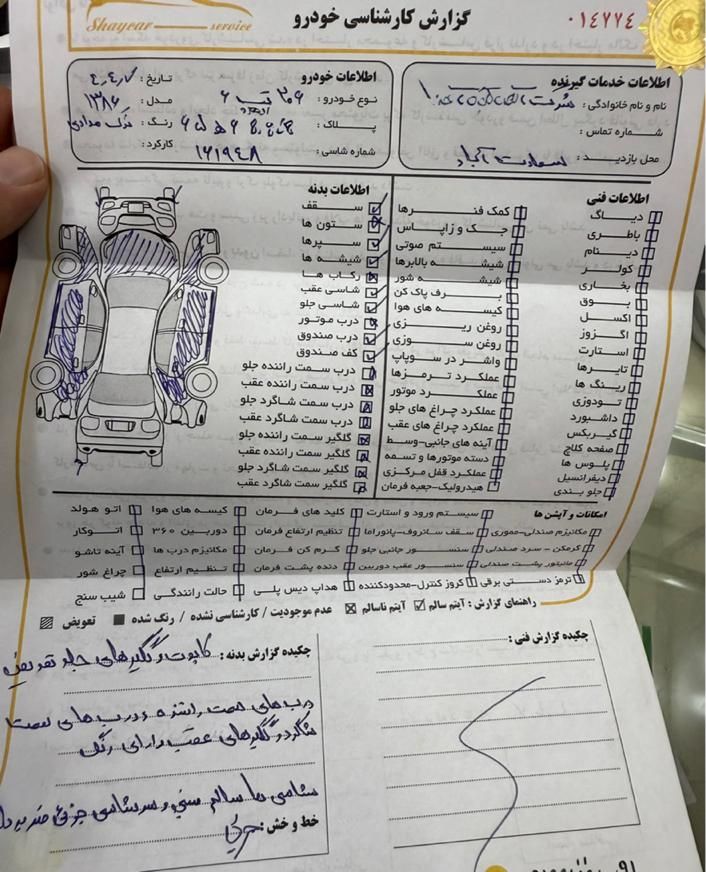 Shaycar service
گزارش کارشناسی خودرو
۰۱۴۷۷۴
اطلاعات خدمات گیرنده
نام و نام خانوادگی: شرکت
شماره تماس:
محل بازدید: سعادت آباد
اطلاعات خودرو
نوع خودرو: ۲۰۶ تیپ ۶
تاریخ:
مدل: ۱۳۸۶
پلاک:
رنگ: نوک مدادی
شماره شاسی:
کارکرد: ۱۶۱۹۴۸
اطلاعات فنی
دیاگ
باطری
دینام
کولر
بخاری
بوق
اکسل
اگزوز
استارت
تایرها
رینگ ها
تودوزی
داشبورد
گیربکس
صفحه کلاچ
پلوس ها
دیفرانسیل
جلو بندی
کمک فنرها
جک و زاپاس
سیستم صوتی
شیشه بالابرها
شیشه شور
برف پاک کن
کیسه های هوا
روغن ریزی
روغن سوزی
واشر در سوپاپ
عملکرد ترمزها
عملکرد موتور
عملکرد چراغ های جلو
عملکرد چراغ های عقب
آینه های جانبی-وسط
دسته موتورها و تسمه
عملکرد قفل مرکزی
هیدرولیک-جعبه فرمان
اطلاعات بدنه
سقف
ستون ها
سپرها
شیشه ها
رکاب ها
شاسی عقب
شاسی جلو
درب موتور
درب صندوق
کف صندوق
درب سمت راننده جلو
درب سمت راننده عقب
درب سمت شاگرد جلو
درب سمت شاگرد عقب
گلگیر سمت راننده جلو
گلگیر سمت راننده عقب
گلگیر سمت شاگرد جلو
گلگیر سمت شاگرد عقب
امکانات و آپشن ها
سیستم ورود و استارت
کلید های فرمان
کیسه های هوا
اتو هولد
مکانیزم صندلی-مموری
سقف سانروف-پانوراما
تنظیم ارتفاع فرمان
دوربین ۳۶۰
اتوکار
گرمکن - سرد صندلی
سنسور جانبی جلو
گرم کن فرمان
مکانیزم درب ها
آینه تاشو
مانیتور پشت صندلی
سنسور عقب دوربین
دنده پشت فرمان
تنظیم ارتفاع
چراغ شور
ترمز دستی برقی
کروز کنترل-محدودکننده
هداپ دیس پلی
حالت رانندگی
شیب سنج
راهنمای گزارش: آیتم سالم آیتم ناسالم عدم موجودیت / کارشناسی نشده / رنگ شده تعویض
چکیده گزارش فنی:
چکیده گزارش بدنه: کاپوت و گلگیرهای جلو تعویض
درب های سمت راننده و درب های سمت
شاگرد و گلگیرهای عقب دارای رنگ
شاسی ها سالم سینی و سرشاسی جزئی ضربه
خط و خش: جزئی